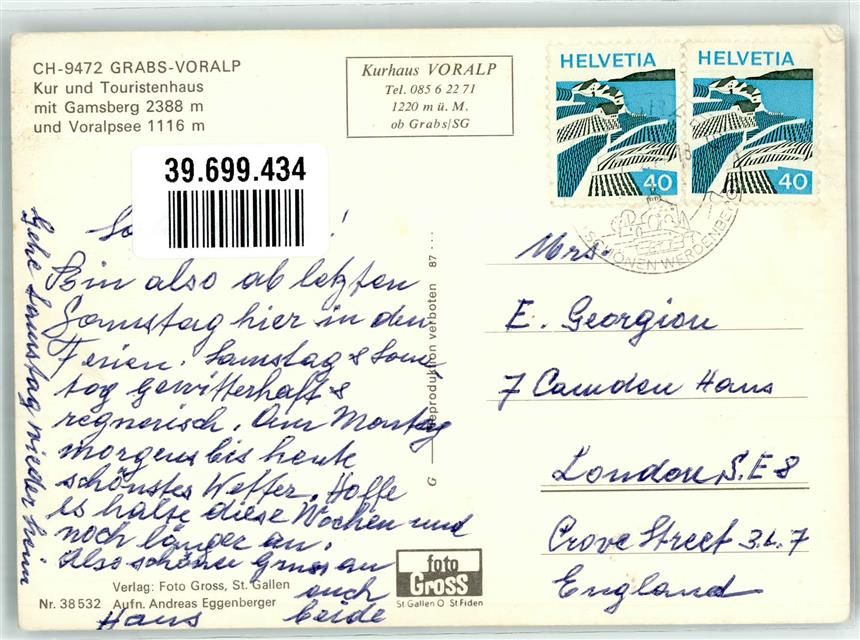 CH-9472 GRABS-VORALP
Kur und Touristenhaus
mit Gamsberg 2388 m
und Voralpsee 1116 m
Kurhaus VORALP
Tel. 085 6 22 71
1220 m ü. M.
ob Grabs/SG
HELVETIA
40
HELVETIA
40
SCHÖNEN WERDENBERG
39.699.434
!
Bin also ab letzten
Samstag hier in den
Ferien. Samstag & Sonn
tag gewitterhaft &
regnerisch. Am Montag
morgens bis heute
schönstes Wetter. Hoffe
es halte diese Wochen und
noch länger an.
Also schöner Gruss an
euch
Hans beide
Gehe Samstag wieder heim
G Reproduktion verboten 87 ...
Mrs.
E. Georgiou
7 Camden Haus
London S.E 8
Crove Street 3.L.7
England
Verlag: Foto Gross, St. Gallen
Nr. 38 532 Aufn. Andreas Eggenberger
foto
Gross
St.Gallen O St.Fiden